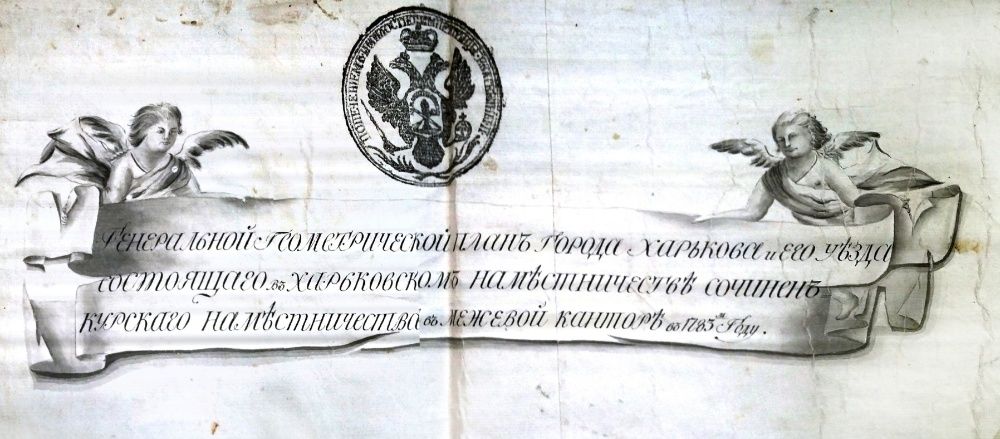 Генеральной Геометрической планъ города Харькова и его уѣзда
состоящаго въ Харьковскомъ намѣстничествѣ сочиненъ
Курскаго намѣстничества въ межевой канторѣ въ 1785ᵐ году.